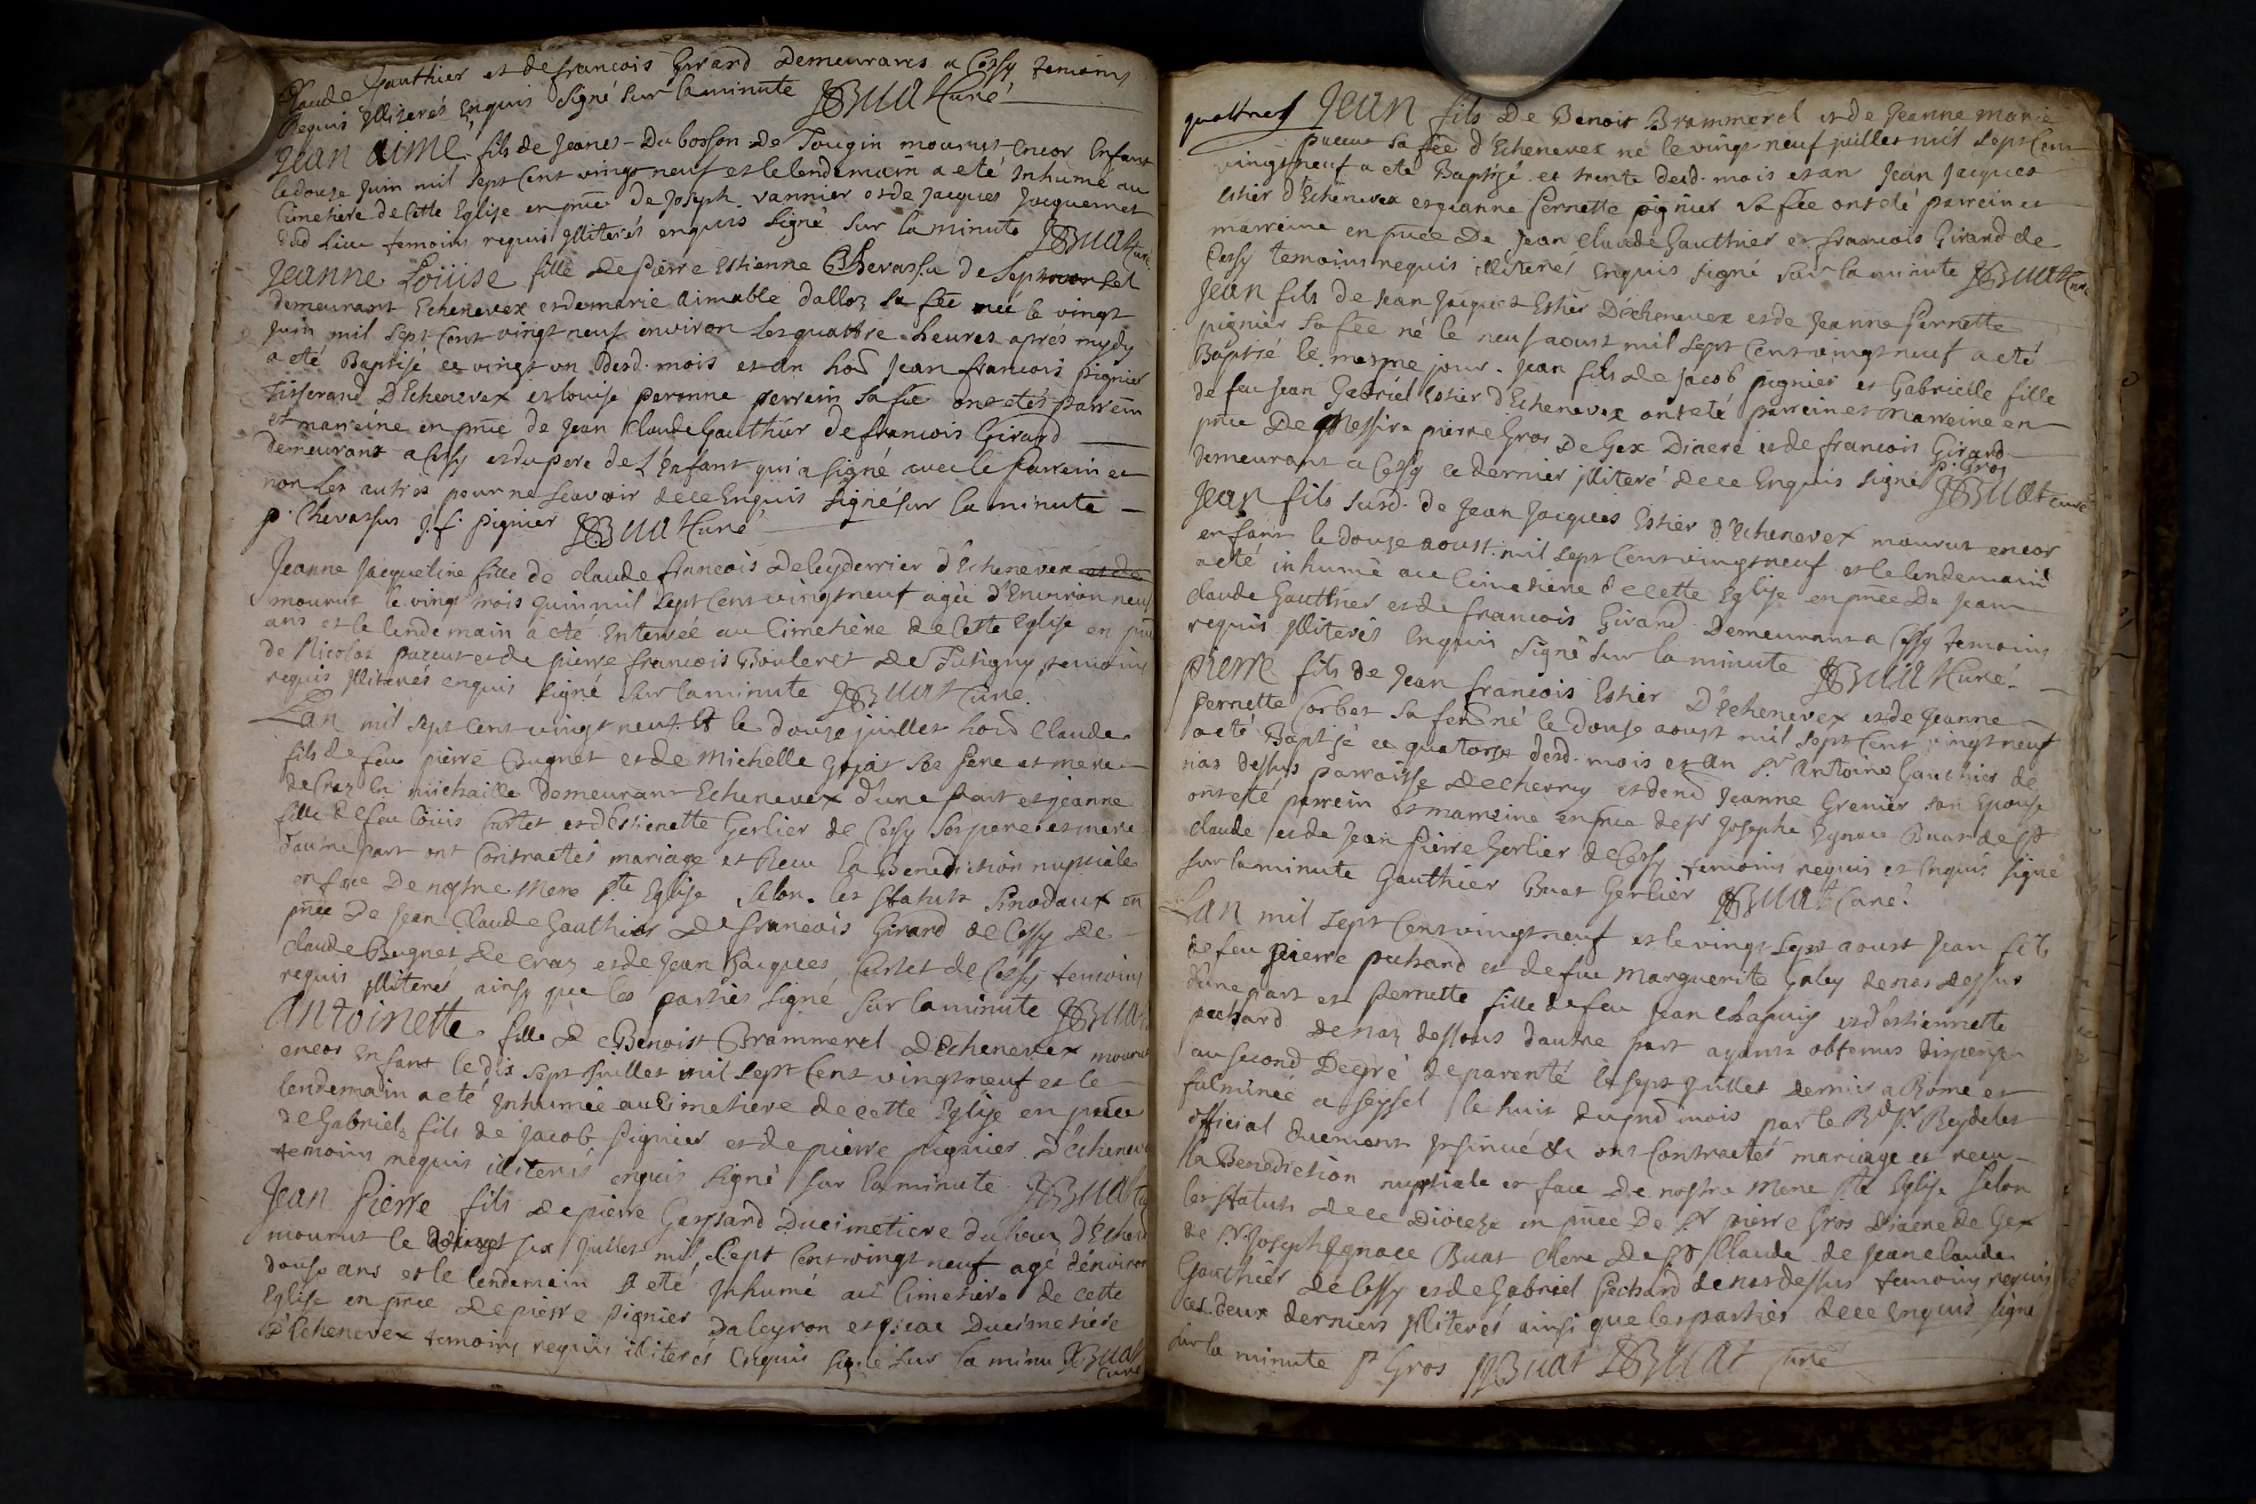 Claude Gauthier et de francois Girard Demeurants a Cessy temoins
Requis Illiterés Enquis signé sur la minute JBuat Curé
Jean Aimé fils de Jeanet Dubosson De Tougin mourut encor Enfant
le douze Juin mil sept cent vingt neuf et le lendemain a eté Inhumé au
Cimetiere de Cette Eglise en pnce De Joseph Vannier et de Jacques Jacquemet
dud lieu temoins requis Illiterés enquis signé sur la minute JBuat Curé
Jeanne Loüise fille de pierre Estienne Chevassu de Septmoncel
demeurant Echenevex et de marie aimable dalloz sa fee neé le vingt
Juin mil sept Cent vingt neuf environ les quattre heures aprés mydy
a eté Baptisé ce vingt un desd. mois et an hod Jean francois pignier
Tisserand D'Echenevex et louise peronne perrein sa fee ont etés parrein
et marreine en pnce de Jean Claude Gauthier de francois Girard
demeurant a Cessy et du pere de L'Enfant qui a signé avec le parrein et
non les autres pour ne scavoir de ce Enquis signé sur la minute
p. Chevassus J. f. pignier JBuat Curé
Jeanne Jacqueline fille de claude francois Deleyderrier d'Echenevex et de
mourut le vingt trois Juin mil sept Cent vingt neuf agée d'Environ neuf
ans et le lendemain a eté Enterrée au Cimetiére de Cette Eglise en pnce
de Nicolas et de pierre francois Bouleret De temoins
requis Illiterés enquis signé sur la minute JBuat Curé.
Lan mil sept cent vingt neuf & le douze juillet hod Claude
fils de feu pierre Bugnet et de Michelle Gojat ses pere et mere
de Craz en michaille Demeurant Echenevex d'une part et jeanne
fille de feu Loüis Curlet et d'Estienette Gerlier de Cessy ses pere et mere
d'autre part ont Contractés mariage et Reçu la Benediction nuptiale
en face De nostre Mere Ste Eglise selon les statuts Sinodaux en
pnce De Jean Claude Gauthier De francois Girard de Cessy De
claude Bugnet de Craz et de Jean Jacques Curlet de Cessy temoins
requis Illiterés ainsy que les parties signé sur la minute JBuat
Antoinette fille de Benoist Brammerel D'Echenevex mourut
encor Enfant le dix sept Juillet mil sept Cent vingt neuf et le
lendemain a eté Inhumée au Cimetiere de cette Eglise en pnce
de Gabriel fils de Jacob pignier et de pierre pignier D'Echenevex
temoins requis illiterés enquis signé sur la minute JBuat
Jean Pierre fils de pierre Gaspard Ducimetiere
mourut le six Juillet mil Sept Cent vingt neuf agé d'environ
douze ans et le lendemain a eté Inhumé au Cimetiere de cette
Eglise en pnce de pierre pignier Daleyron et Ducimetiére
d'Echenevex temoins requis illiterés enquis signé sur la minu JBuat
Curé
Jean fils De Benoit Brammerel et de Jeanne marie
sa fee d'Echenevex né le vingt neuf juillet mil sept Cent
vingt neuf a eté Baptizé ce trente desd. mois et an Jean Jacques
Estier d'Echenevex et jeanne pernette pignier sa fee ont eté parrein et
marreine en pnce De Jean Claude Gauthier et francois Girard de
Cessy temoins requis illiterés Enquis signé sur la minute JBuat Curé
Jean fils de Jean Jacques Estier D'Echenevex et de Jeanne Pernette
pignier sa fee né le neuf aoust mil sept Cent vingt neuf a eté
Baptisé le mesme jour. Jean fils de Jacob pignier et Gabrielle fille
de feu Jean Gabriel Estier d'Echenevex ont eté parrein et marreine en
pnce De Messire pierre Gros De Gex Diacre et de francois Girard
demeurant a Cessy ce dernier illiteré de ce Enquis signé P. Gros
JBuat curé
Jean fils susd. de Jean Jacques Estier d'Echenevex mourut encor
enfant le douze aoust mil sept Cent vingt neuf et le lendemain
a eté inhumé au Cimetiere de cette Eglise en pnce De Jean
claude Gauthier et de francois Girard Demeurant a Cessy temoins
requis Illiterés Enquis signé sur la minute JBuat Curé.
Pierre fils de Jean francois Estier D'Echenevex et de Jeanne
Pernette Corbet sa fee né le douze aoust mil sept Cent vingt neuf
a eté Baptisé ce quatorze desd. mois et an Sr Antoine Gauthier de
nas dessus parroisse de Chevry et Jeanne Grenier son Epouse
ont eté parrein et marreine en pnce de Sr Josephe Ignace Buat de St
claude et de Jean Pierre Gerlier de Cessy temoins requis et enquis signé
sur la minute Gauthier Buat Gerlier JBuat Curé.
Lan mil sept Cent vingt neuf et le vingt sept aoust Jean fils
de feu pierre pechard et de fue Marguerite Galey de nas dessus
d'une part et Pernette fille de feu Jean Chapuis et d'estiennette
pechard de naz dessous d'autre part ayants obtenus dispense
au second Degré de parenté le sept Juillet dernier a Rome et
fulminée a Seyssel le huit dupnd mois par le Rd Sr. Reydelet
official duement Insinué & ont Contractés mariage et recu
la Benediction nuptiale en face De nostre Mere Ste Eglise selon
les statuts de ce Dioceze en pnce De Sr pierre Gros Diacre de Gex
de Sr. Joseph Ignace Buat Clerc De St Claude de Jean claude
Gauthier de Cessy et de Gabriel Pechard de nas dessus temoins requis
ces deux derniers Illiterés ainsi que les parties de ce Enquis signé
sur la minute P. Gros JJBuat JBuat curé